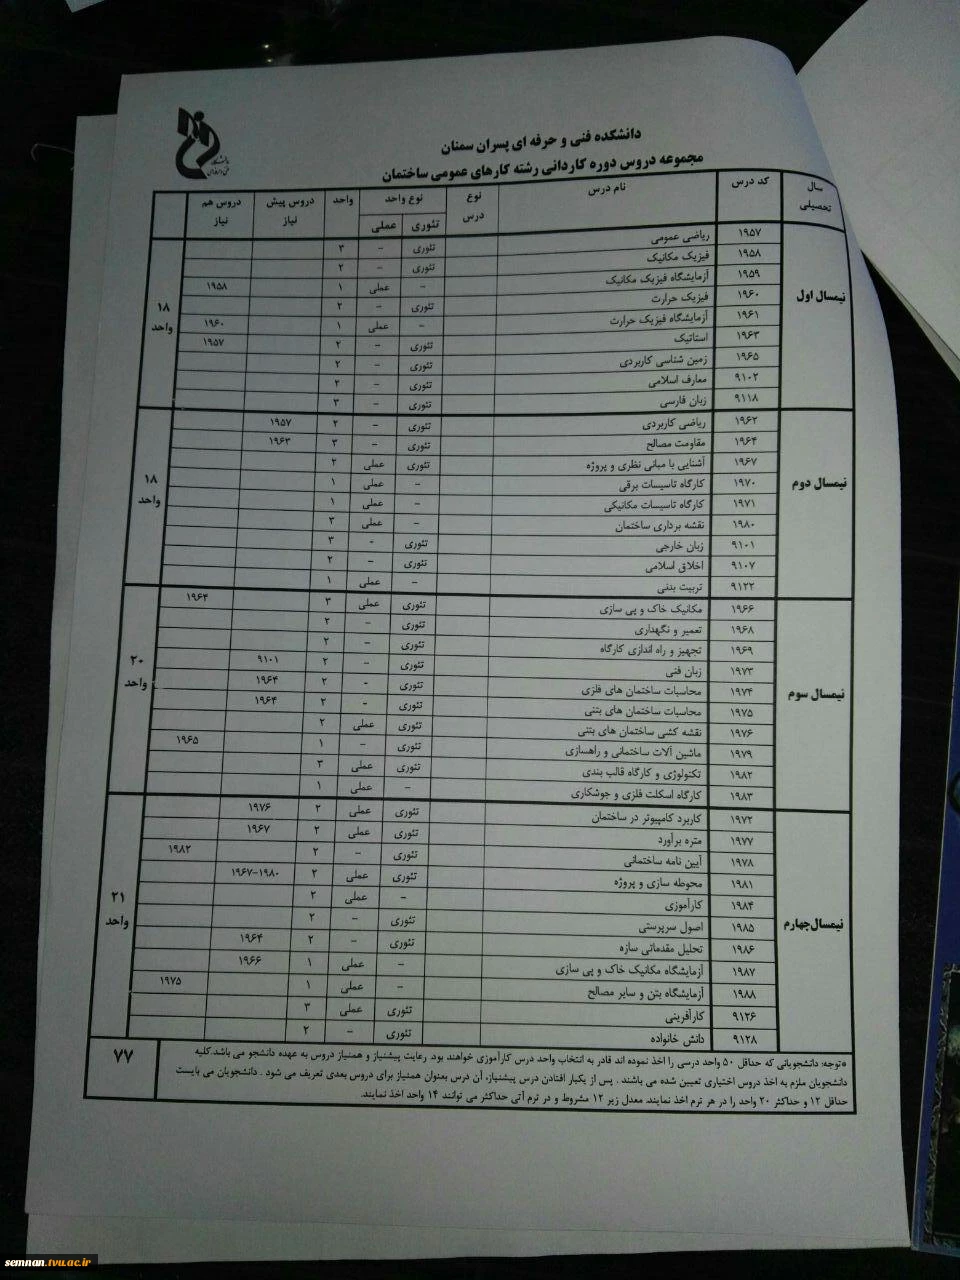 دانشکده فنی و حرفه ای پسران سمنان
مجموعه دروس دوره کاردانی رشته کارهای عمومی ساختمان
سال تحصیلی | کد درس | نام درس | نوع درس | نوع واحد | واحد | دروس پیش نیاز | دروس هم نیاز
تئوری | عملی
نیمسال اول
۱۸ واحد
۱۹۵۷ | ریاضی عمومی | تئوری | - | ۳
۱۹۵۸ | فیزیک مکانیک | تئوری | - | ۲
۱۹۵۹ | آزمایشگاه فیزیک مکانیک | - | عملی | ۱ | ۱۹۵۸
۱۹۶۰ | فیزیک حرارت | تئوری | - | ۲
۱۹۶۱ | آزمایشگاه فیزیک حرارت | - | عملی | ۱ | ۱۹۶۰
۱۹۶۳ | استاتیک | تئوری | - | ۲ | ۱۹۵۷
۱۹۶۵ | زمین شناسی کاربردی | تئوری | - | ۲
۹۱۰۲ | معارف اسلامی | تئوری | - | ۲
۹۱۱۸ | زبان فارسی | تئوری | - | ۳
نیمسال دوم
۱۸ واحد
۱۹۶۲ | ریاضی کاربردی | تئوری | - | ۲ | ۱۹۵۷
۱۹۶۴ | مقاومت مصالح | تئوری | - | ۳ | ۱۹۶۳
۱۹۶۷ | آشنایی با مبانی نظری و پروژه | تئوری | عملی | ۲
۱۹۷۰ | کارگاه تاسیسات برقی | - | عملی | ۱
۱۹۷۱ | کارگاه تاسیسات مکانیکی | - | عملی | ۱
۱۹۸۰ | نقشه برداری ساختمان | - | عملی | ۳
۹۱۰۱ | زبان خارجی | تئوری | - | ۳
۹۱۰۷ | اخلاق اسلامی | تئوری | - | ۲
۹۱۲۲ | تربیت بدنی | - | عملی | ۱
نیمسال سوم
۲۰ واحد
۱۹۶۶ | مکانیک خاک و پی سازی | تئوری | عملی | ۳ | ۱۹۶۴
۱۹۶۸ | تعمیر و نگهداری | تئوری | - | ۲
۱۹۶۹ | تجهیز و راه اندازی کارگاه | تئوری | - | ۲
۱۹۷۳ | زبان فنی | تئوری | - | ۲ | ۹۱۰۱
۱۹۷۴ | محاسبات ساختمان های فلزی | تئوری | - | ۲ | ۱۹۶۴
۱۹۷۵ | محاسبات ساختمان های بتنی | تئوری | - | ۲ | ۱۹۶۴
۱۹۷۶ | نقشه کشی ساختمان های بتنی | تئوری | عملی | ۲
۱۹۷۹ | ماشین آلات ساختمانی و راهسازی | تئوری | - | ۱ | ۱۹۶۵
۱۹۸۲ | تکنولوژی و کارگاه قالب بندی | تئوری | عملی | ۳
۱۹۸۳ | کارگاه اسکلت فلزی و جوشکاری | - | عملی | ۱
نیمسال چهارم
۲۱ واحد
۱۹۷۲ | کاربرد کامپیوتر در ساختمان | تئوری | عملی | ۲ | ۱۹۷۶
۱۹۷۷ | متره برآورد | تئوری | عملی | ۲ | ۱۹۶۷
۱۹۷۸ | آیین نامه ساختمانی | تئوری | - | ۲ | ۱۹۸۲
۱۹۸۱ | محوطه سازی و پروژه | تئوری | عملی | ۲ | ۱۹۸۰-۱۹۶۷
۱۹۸۴ | کارآموزی | - | عملی | ۲
۱۹۸۵ | اصول سرپرستی | تئوری | - | ۲
۱۹۸۶ | تحلیل مقدماتی سازه | تئوری | - | ۲ | ۱۹۶۴
۱۹۸۷ | آزمایشگاه مکانیک خاک و پی سازی | - | عملی | ۱ | ۱۹۶۶
۱۹۸۸ | آزمایشگاه بتن و سایر مصالح | - | عملی | ۱ | ۱۹۷۵
۹۱۲۶ | کارآفرینی | تئوری | عملی | ۳
۹۱۲۸ | دانش خانواده | تئوری | - | ۲
*توجه: دانشجویانی که حداقل ۵۰ واحد درسی را اخذ نموده اند قادر به انتخاب واحد درس کارآموزی خواهند بود. رعایت پیشنیاز و همنیاز دروس به عهده دانشجو می باشد.کلیه
دانشجویان ملزم به اخذ دروس اختیاری تعیین شده می باشند . پس از یکبار افتادن درس پیشنیاز، آن درس بعنوان همنیاز برای دروس بعدی تعریف می شود . دانشجویان می بایست
حداقل ۱۲ و حداکثر ۲۰ واحد را در هر ترم اخذ نمایند. معدل زیر ۱۲ مشروط و در ترم آتی حداکثر می توانند ۱۴ واحد اخذ نمایند.
۷۷
semnan.tvu.ac.ir